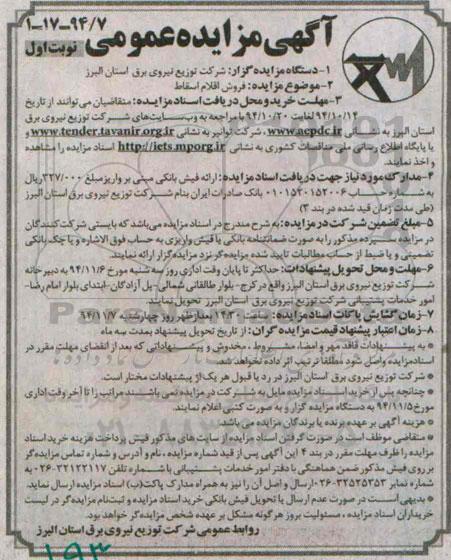 آگهی مزایده عمومی
۱-۱۷-۹۴/۷
نوبت اول
۱- دستگاه مزایده گزار: شرکت توزیع نیروی برق استان البرز
۲- موضوع مزایده: فروش اقلام اسقاط
۳- مهلت خرید و محل دریافت اسناد مزایده: متقاضیان می توانند از تاریخ
۹۴/۱۰/۱۴ لغایت ۹۴/۱۰/۲۰ با مراجعه به وب سایت‌های شرکت توزیع نیروی برق
استان البرز به نشانی www.acpdc.ir، شرکت توانیر به نشانی www.tender.tavanir.org.ir و
یا پایگاه اطلاع رسانی ملی مناقصات کشوری به نشانی http://iets.mporg.ir اسناد مزایده را مشاهده
و اخذ نمایند.
۴- مدارک مورد نیاز جهت دریافت اسناد مزایده: ارائه فیش بانکی مبنی بر واریز مبلغ ۳۲۷/۰۰۰ ریال
به شماره حساب ۰۱۰۱۵۳۰۱۵۲۰۰۶ بانک صادرات ایران بنام شرکت توزیع نیروی برق استان البرز
(طی مدت زمان قید شده در بند ۳)
۵- مبلغ تضمین شرکت در مزایده: به شرح مندرج در اسناد مزایده می‌باشد که بایستی شرکت کنندگان
در مزایده سپرده مذکور را به صورت ضمانتنامه بانکی یا فیش واریزی به حساب فوق الاشاره و یا چک بانکی
تضمینی و یا ضبط از حساب مطالبات تایید شده مزایده گر نزد مزایده گزار ارائه نمایند.
۶- مهلت و محل تحویل پیشنهادات: حداکثر تا پایان وقت اداری روز سه شنبه مورخ ۹۴/۱۱/۶ به دبیرخانه
شرکت توزیع نیروی برق استان البرز واقع در کرج- بلوار طالقانی شمالی- پل آزادگان- ابتدای بلوار امام رضا-
امور خدمات پشتیبانی شرکت توزیع نیروی برق استان البرز تحویل نمایند.
۷- زمان گشایش پاکات اسناد مزایده: ساعت ۱۴:۳۰ بعدازظهر روز چهارشنبه ۹۴/۱۱/۷
۸- زمان اعتبار پیشنهاد قیمت مزایده گران: از تاریخ تحویل پیشنهاد بمدت سه ماه
* به پیشنهادات فاقد مهر و امضا، مشروط، مخدوش و پیشنهاداتی که بعد از انقضای مهلت مقرر در
اسناد مزایده واصل شود مطلقا ترتیب اثر داده نخواهد شد.
* شرکت توزیع نیروی برق استان البرز در رد یا قبول هر یک از پیشنهادات مختار است.
* چنانچه پس از خرید اسناد مزایده مایل به شرکت در مزایده نمی باشند مراتب را تا آخر وقت اداری
مورخ ۹۴/۱۱/۵ به دستگاه مزایده گزار و به صورت کتبی اعلام نمایند.
* هزینه آگهی بر عهده برنده یا برندگان مزایده می باشد.
* متقاضی موظف است در صورت گرفتن اسناد مزایده از سایت های مذکور فیش پرداخت هزینه خرید اسناد
مزایده را ظرف مهلت مقرر در بند ۴ این آگهی پس از قید شماره مزایده، نام و آدرس و شماره تماس مزایده گر
بر روی فیش مذکور ضمن هماهنگی با دفتر امور خدمات پشتیبانی با شماره تلفن ۳۲۱۲۲۱۱۷-۰۲۶ به
شماره نمابر ۳۲۵۲۵۳۵۳-۰۲۶ ارسال و اصل آن را نیز به همراه مدارک پاکت(ب) اسناد مزایده ارسال نماید.
* بدیهی است در صورت عدم ارسال یا تحویل فیش بانکی خرید اسناد مزایده و ثبت‌نام مزایده گر در لیست
خریداران اسناد مزایده، مسئولیت بروز هرگونه مشکل بر عهده شخص مزایده گر خواهد بود.
روابط عمومی شرکت توزیع نیروی برق استان البرز
۱۹۳